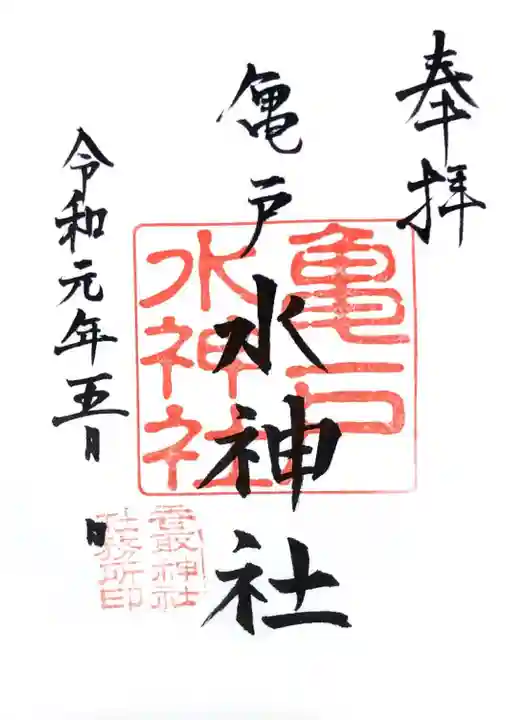 奉拝
亀戸
水神社
亀戸
水神社
令和元年五月
日
香取神社
社務所印